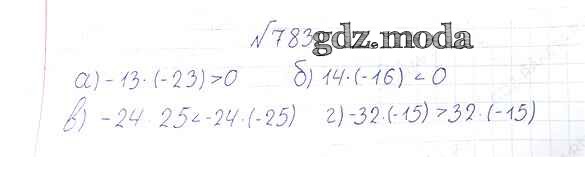 №783 gdz.moda
а) -13·(-23)>0 б) 14·(-16) < 0
в) -24·25<-24·(-25) г) -32·(-15)>32·(-15)